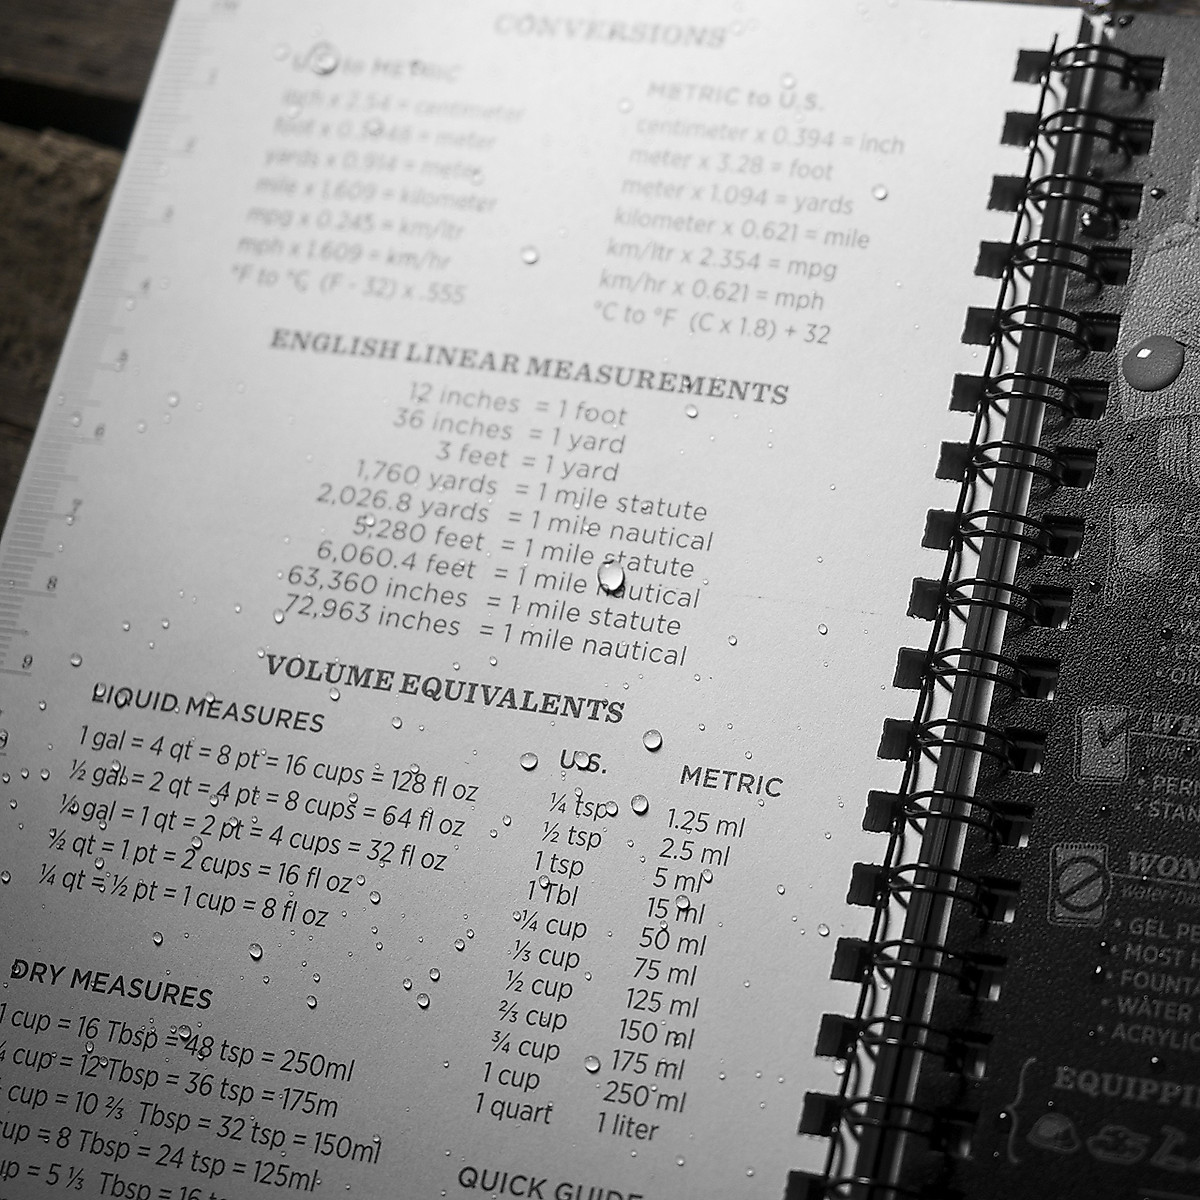 CONVERSIONS
to METRIC
inch x 2.54 = centimeter
foot x 0.3048 = meter
yards x 0.914 = meter
mile x 1.609 = kilometer
mpg x 0.245 = km/ltr
mph x 1.609 = km/hr
°F to °C (F - 32) x .555
METRIC to U.S.
centimeter x 0.394 = inch
meter x 3.28 = foot
meter x 1.094 = yards
kilometer x 0.621 = mile
km/ltr x 2.354 = mpg
km/hr x 0.621 = mph
°C to °F (C x 1.8) + 32
ENGLISH LINEAR MEASUREMENTS
12 inches = 1 foot
36 inches = 1 yard
3 feet = 1 yard
1,760 yards = 1 mile statute
2,026.8 yards = 1 mile nautical
5,280 feet = 1 mile statute
6,060.4 feet = 1 mile nautical
63,360 inches = 1 mile statute
72,963 inches = 1 mile nautical
VOLUME EQUIVALENTS
LIQUID MEASURES
1 gal = 4 qt = 8 pt = 16 cups = 128 fl oz
½ gal = 2 qt = 4 pt = 8 cups = 64 fl oz
¼ gal = 1 qt = 2 pt = 4 cups = 32 fl oz
½ qt = 1 pt = 2 cups = 16 fl oz
¼ qt = ½ pt = 1 cup = 8 fl oz
U.S. METRIC
¼ tsp 1.25 ml
½ tsp 2.5 ml
1 tsp 5 ml
1 Tbl 15 ml
¼ cup 50 ml
⅓ cup 75 ml
½ cup 125 ml
⅔ cup 150 ml
¾ cup 175 ml
1 cup 250 ml
1 quart 1 liter
DRY MEASURES
1 cup = 16 Tbsp = 48 tsp = 250ml
cup = 12 Tbsp = 36 tsp = 175m
cup = 10 ⅔ Tbsp = 32 tsp = 150ml
= 8 Tbsp = 24 tsp = 125ml
= 5 ⅓ Tbsp = 16
QUICK GUIDE
1
2
3
4
5
6
7
8
9
• GEL
• MOST
• WATER